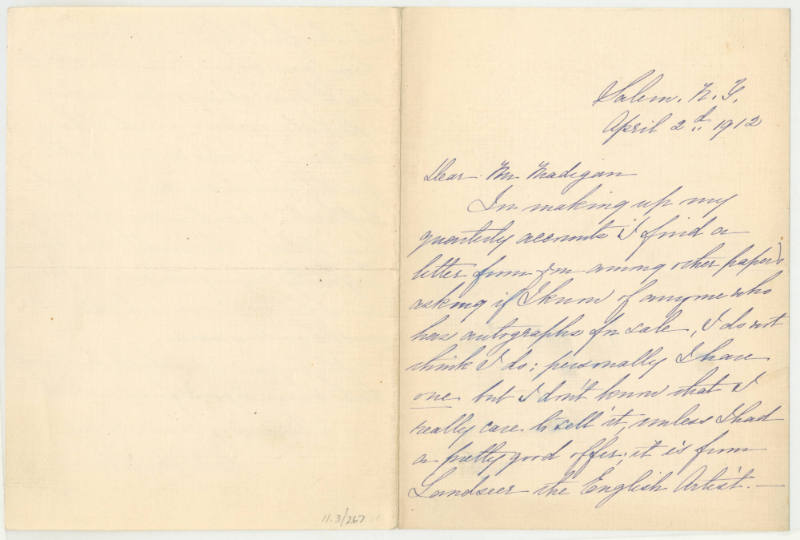 Salem. N. Y.
April 2d 1912
Dear Mr Madigan
In making up my
quarterly accounts I find a
letter from you among other papers
asking if I know of anyone who
has autographs for sale, I do not
think I do; personally I have
one but I don't know that I
really care to sell it, unless I had
a pretty good offer; it is from
Landseer the English Artist. —
11.3/267